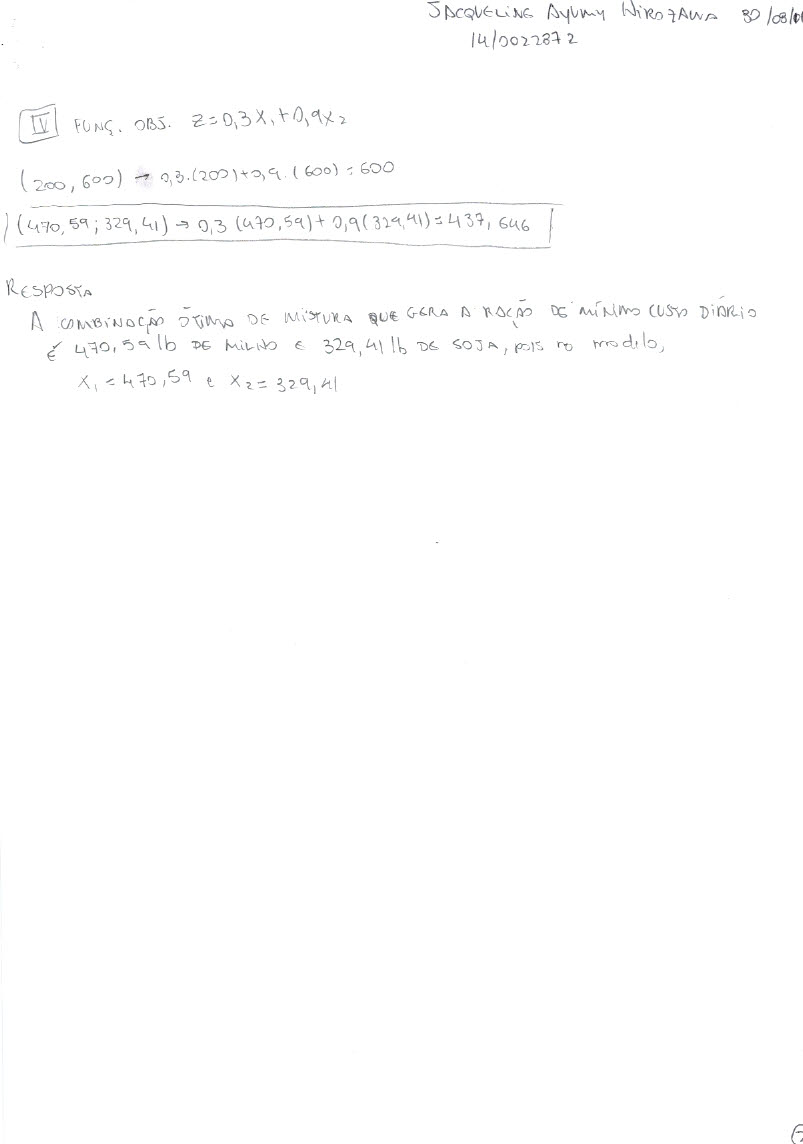 JACQUELINE AYUMY HIROZAWA 30/08/
14/0022872
IV FUNÇ. OBJ. Z=0,3X1+0,9X2
(200, 600) → 0,3.(200)+0,9.(600)=600
(470,59; 329,41) → 0,3 (470,59)+ 0,9(329,41)=437,646
RESPOSTA
A COMBINAÇÃO ÓTIMA DE MISTURA QUE GERA A RAÇÃO DE MÍNIMO CUSTO DIÁRIO
É 470,59 lb DE MILHO E 329,41 lb DE SOJA, pois no modelo,
X1 = 470,59 e X2 = 329,41